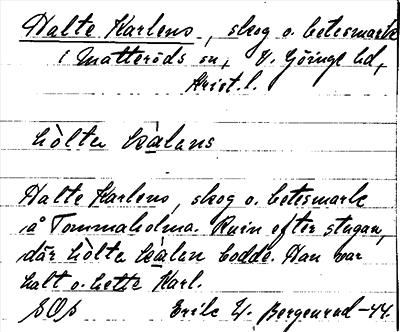 Halte Karlens, skog o. betesmark
i Matteröds sn, V. Göinge hd,
Krist. l.
hòlta kàlans
Halte Karlens, skog o. betesmark
å Tommaholma. Ruin efter stugan,
där hòlta kàlen bodde. Han var
halt o. hette Karl.
SOS Erik W. Bergenrud -44.